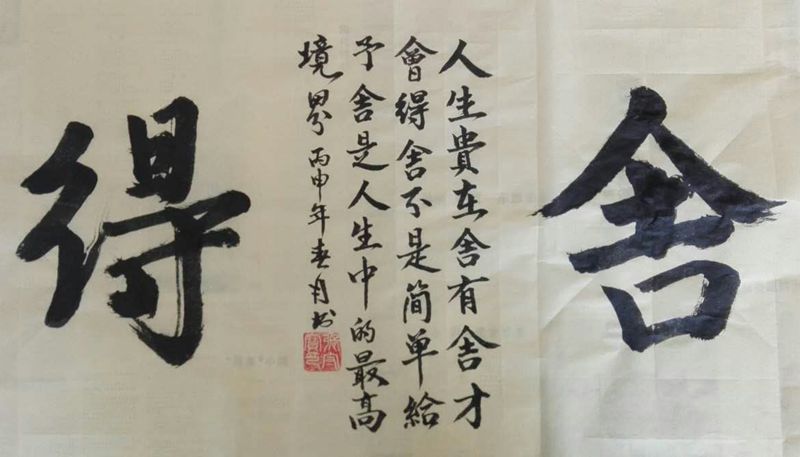 舍
人生貴在舍有舍才
會得舍不是简单給
予舍是人生中的最高
境界丙申年春月书
得